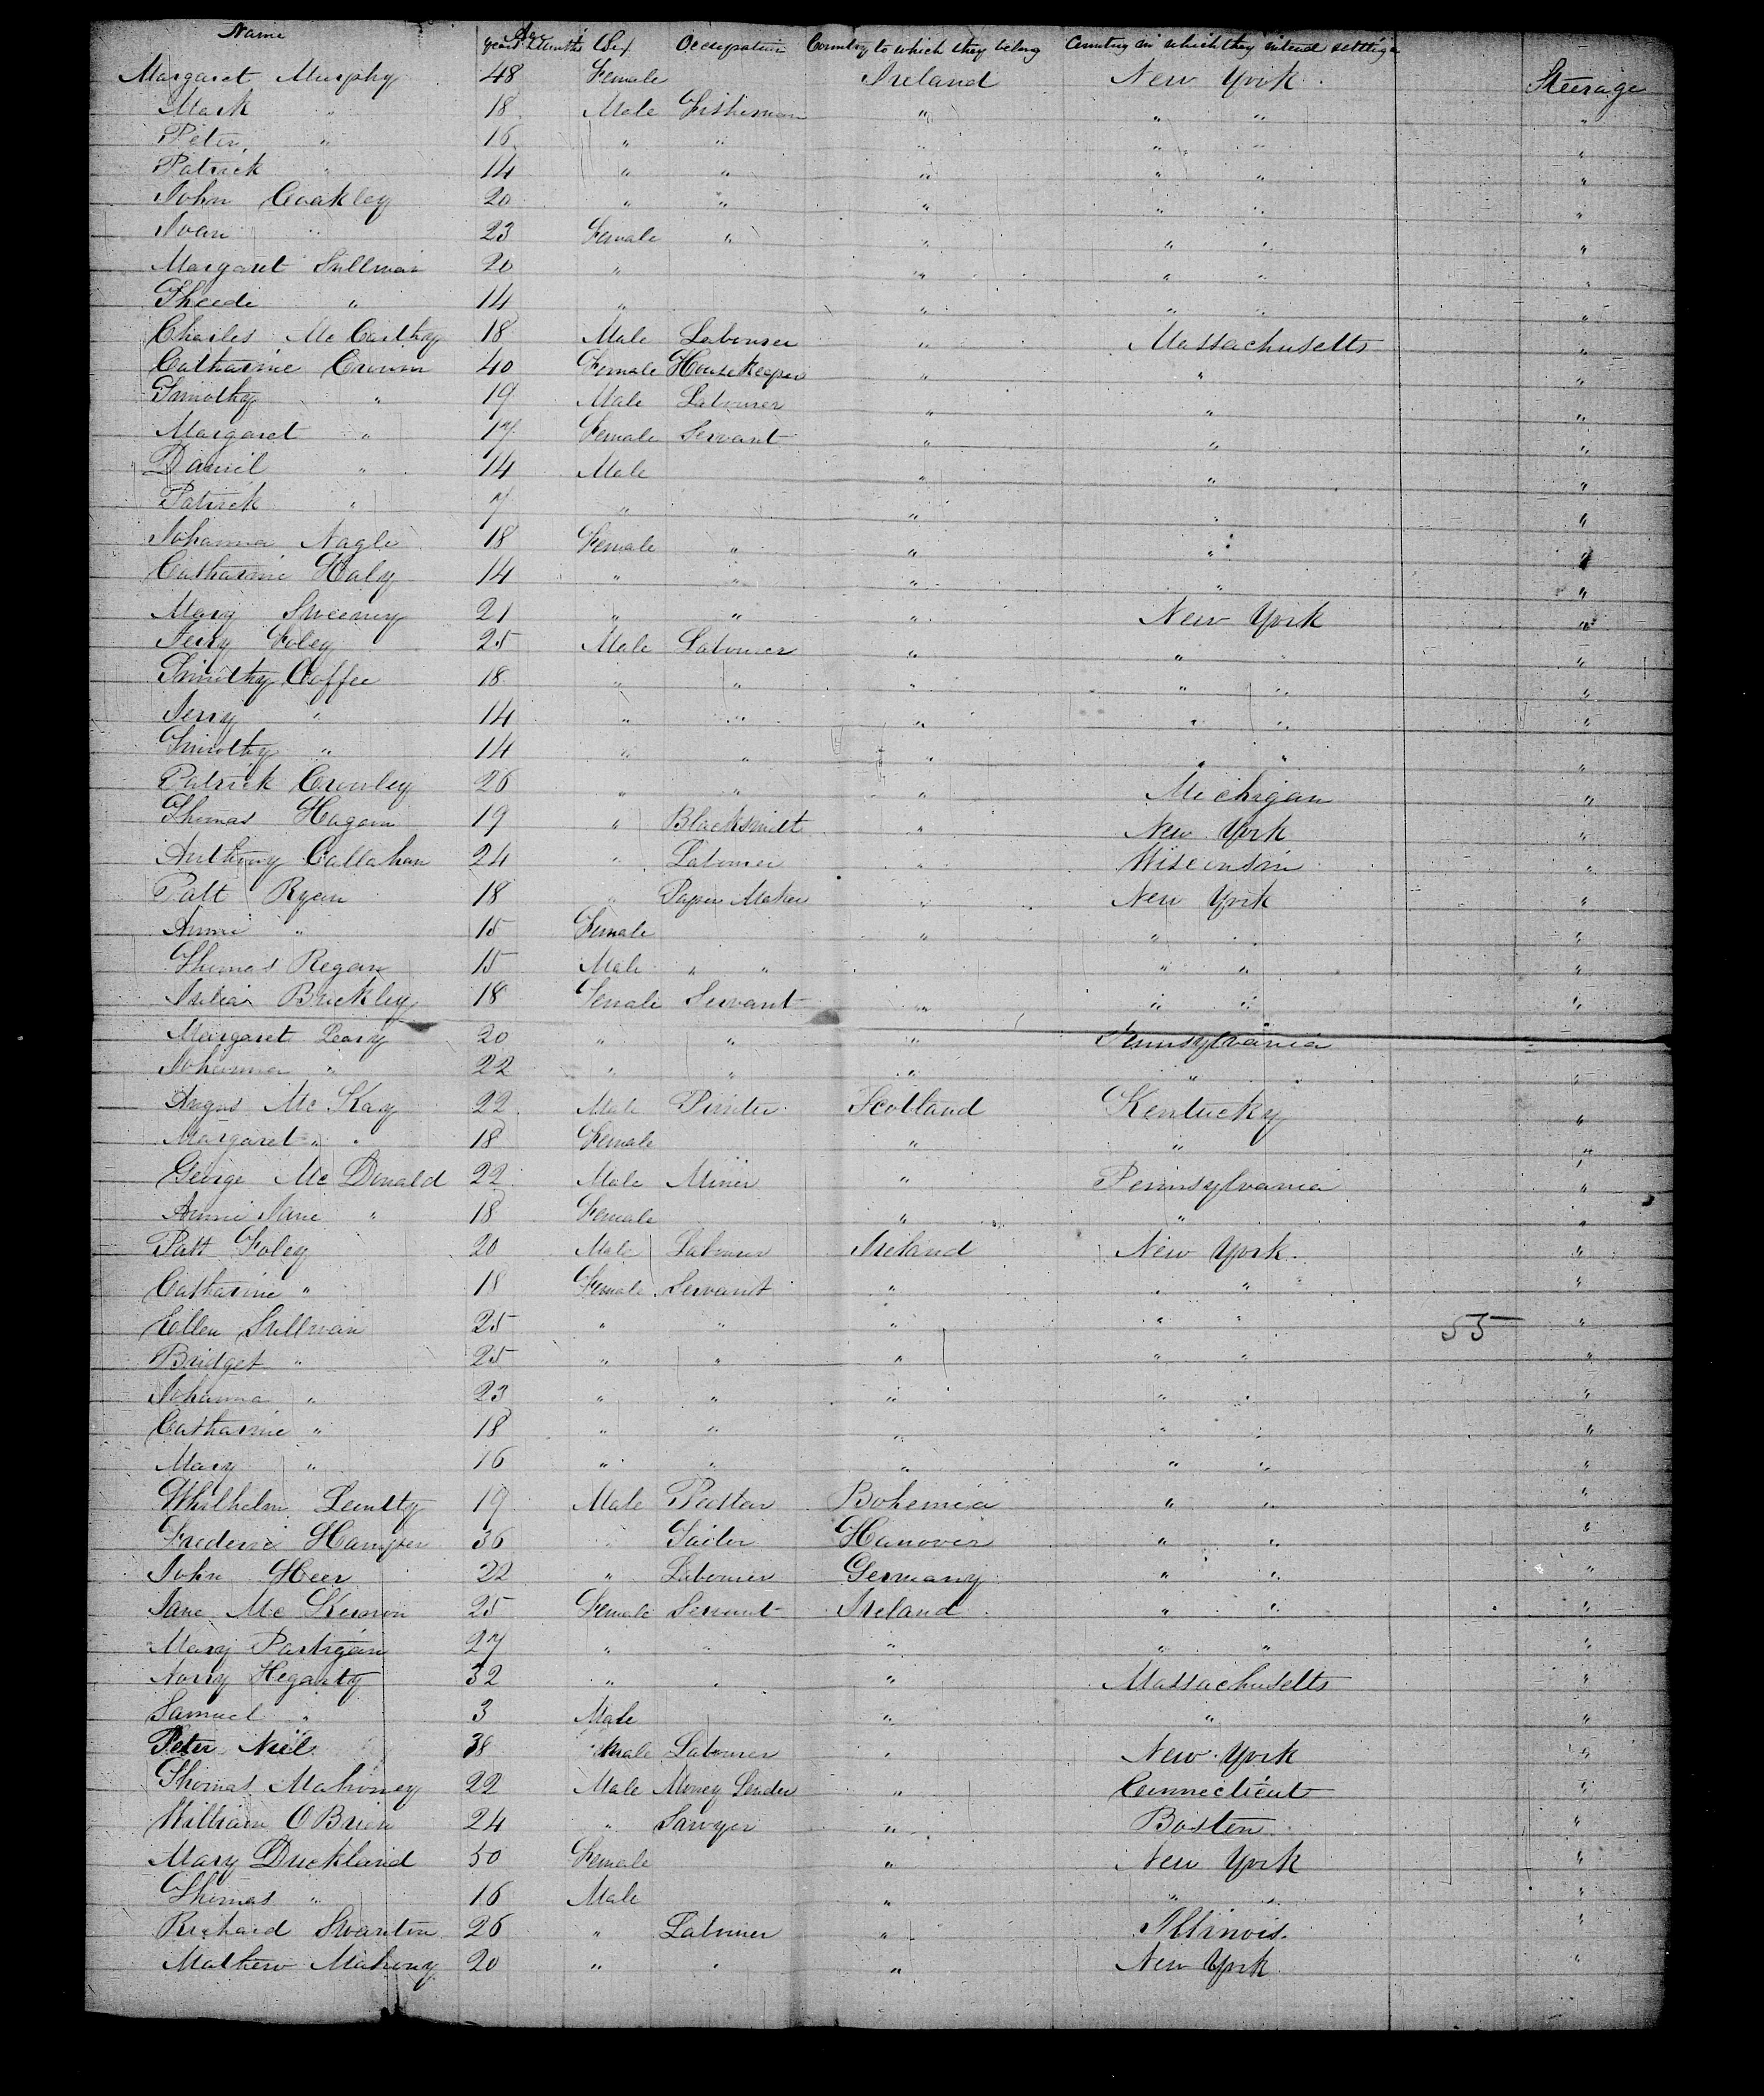 Name Age years Months Sex Occupation Country to which they belong Country in which they intend settling
Margaret Murphy 48 Female Ireland New York Steerage
Mark " 18 Male Fisherman " " " "
Peter " 16 " " " " " "
Patrick " 14 " " " " " "
John Coakley 20 " " " " " "
Joan " 23 Female " " " " "
Margaret Sullivan 20 " " " " "
" 14 " " " " "
Charles McCarthy 18 Male Labourer " Massachusetts "
Catharine Cronin 40 Female Housekeeper " " "
Timothy " 19 Male Labourer " " "
Margaret " 17 Female Servant " " "
Daniel " 14 Male " " "
Patrick " 7 " " " "
Johanna Nagle 18 Female " " " "
Catharine Haly 14 " " " " "
Mary Sweeney 21 " " " New York "
Jerry Foley 25 Male Labourer " " "
Timothy Coffee 18 " " " " " "
Jerry " 14 " " " " " "
Timothy " 14 " " " " " "
Patrick Crowley 26 " " " Michigan "
Thomas Hagan 19 " Blacksmith " New York "
Anthony Callahan 24 " Labourer " Wisconsin "
Patt Ryan 18 " Paper Maker " New York "
Annie " 15 Female " " " "
Thomas Regan 15 Male " " " " " "
Julia Brickley 18 Female Servant " " " "
Margaret Leary 20 " " " Pennsylvania "
Johanna " 22 " " " " "
Angus McKay 22 Male Printer Scotland Kentucky "
Margaret " 18 Female " " "
George McDonald 22 Male Miner " Pennsylvania "
Annie Jane " 18 Female " " "
Patt Foley 20 Male Labourer Ireland New York "
Catharine " 18 Female Servant " " " "
Ellen Sullivan 25 " " " " " 55 "
Bridget " 25 " " " " " "
Johanna " 23 " " " " " "
Catharine " 18 " " " " " "
Mary " 16 " " " " " "
Whilhelm 19 Male Bohemia " " "
Frederic 36 " Tailor Hanover " " "
John Heer 22 " Labourer Germany " " "
Jane McKennon 25 Female Servant Ireland " " "
Mary Partigan 27 " " " " " "
Norry Hegarty 32 " " " Massachusetts "
Samuel " 3 Male " " "
Peter Niel 38 Male Labourer " New York "
Thomas Mahoney 22 Male Money Lender " Connecticut "
William OBrien 24 " Sawyer " Boston "
Mary Duckland 50 Female " New York "
Thomas " 16 Male " " " "
Richard Swanton 26 " Labourer " Illinois "
Mathew Mahony 20 " " " New York "